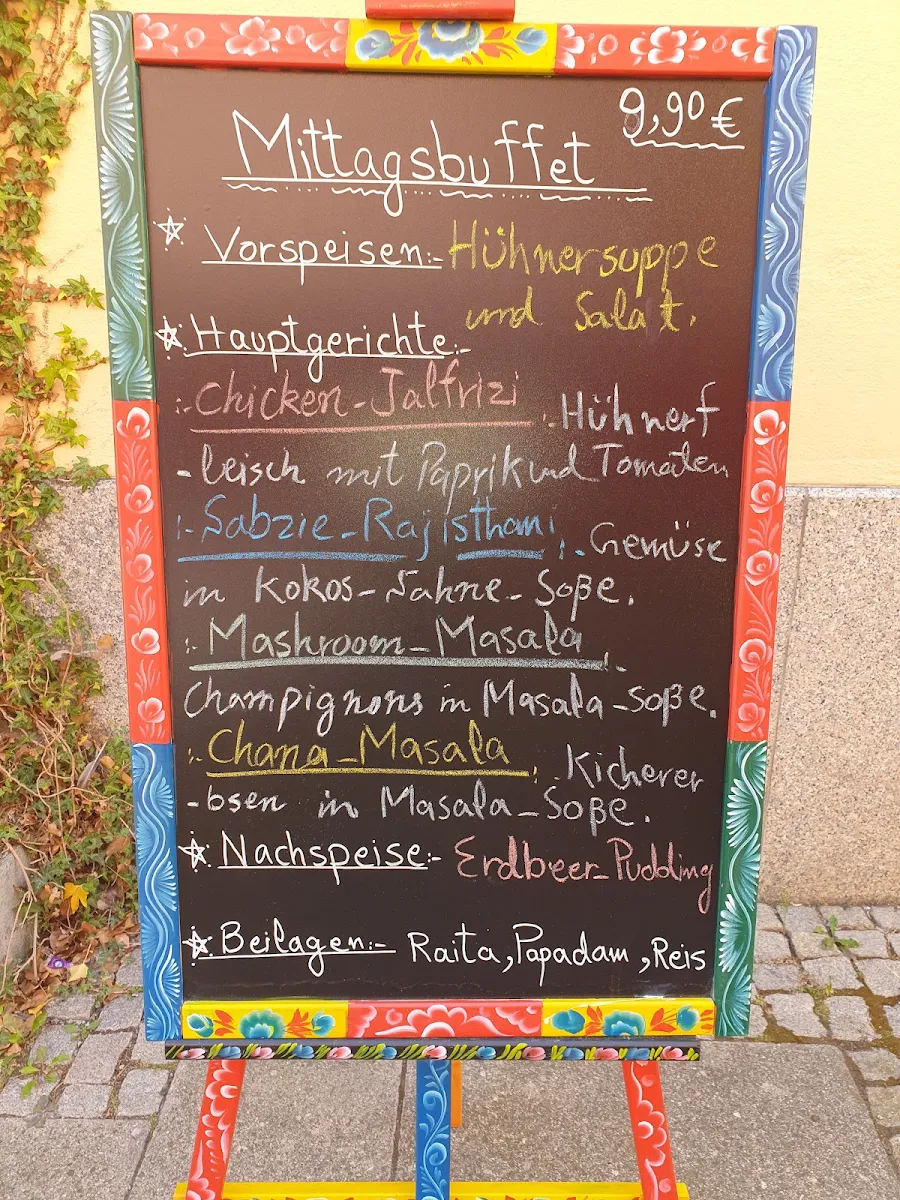 9,90 €
Mittagsbuffet
Vorspeisen:- Hühnersuppe
und Salat.
Hauptgerichte:-
:-Chicken-Jalfrizi :- Hühnerf
-leisch mit Paprik und Tomaten
:-Sabzie-Rajisthani :- Gemüse
in Kokos-Sahne-Soße.
:-Mashroom-Masala :-
Champignons in Masala-soße.
:-Chana-Masala :- Kicherer
-bsen in Masala-Soße.
Nachspeise:- Erdbeer-Pudding
Beilagen:- Raita, Papadam, Reis